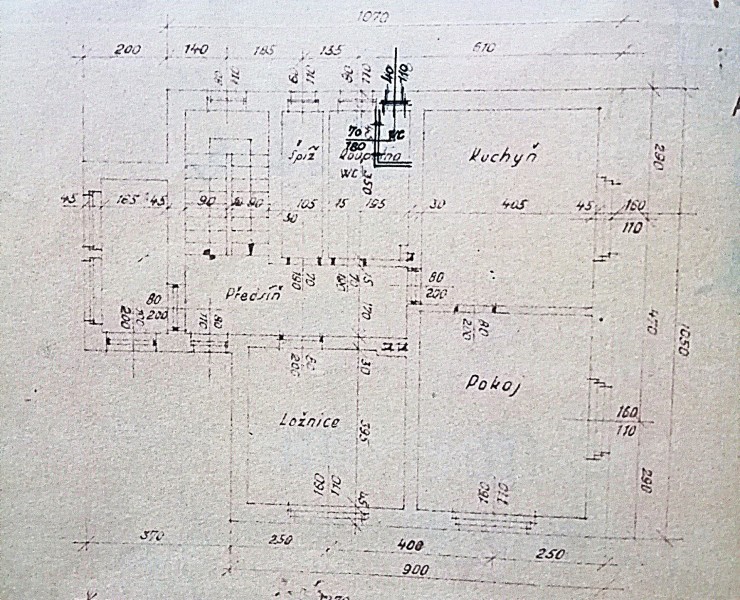 1070
200 140 185 155 610
80 110 60 110 80 110 40 110
70 180 WC
Spíž Koupelna Kuchyň
WC 350
290
45 165 45 90 90 105 15 155 30 405 45 160
110
30
80
200
190 70 70 15
Předsíň
80
200
200 110 80
170
80
200
200 80
470 1050
200 60 30
Ložnice
Pokoj
395
160
110
160 110 160 110
45
290
370 250 400 250
900